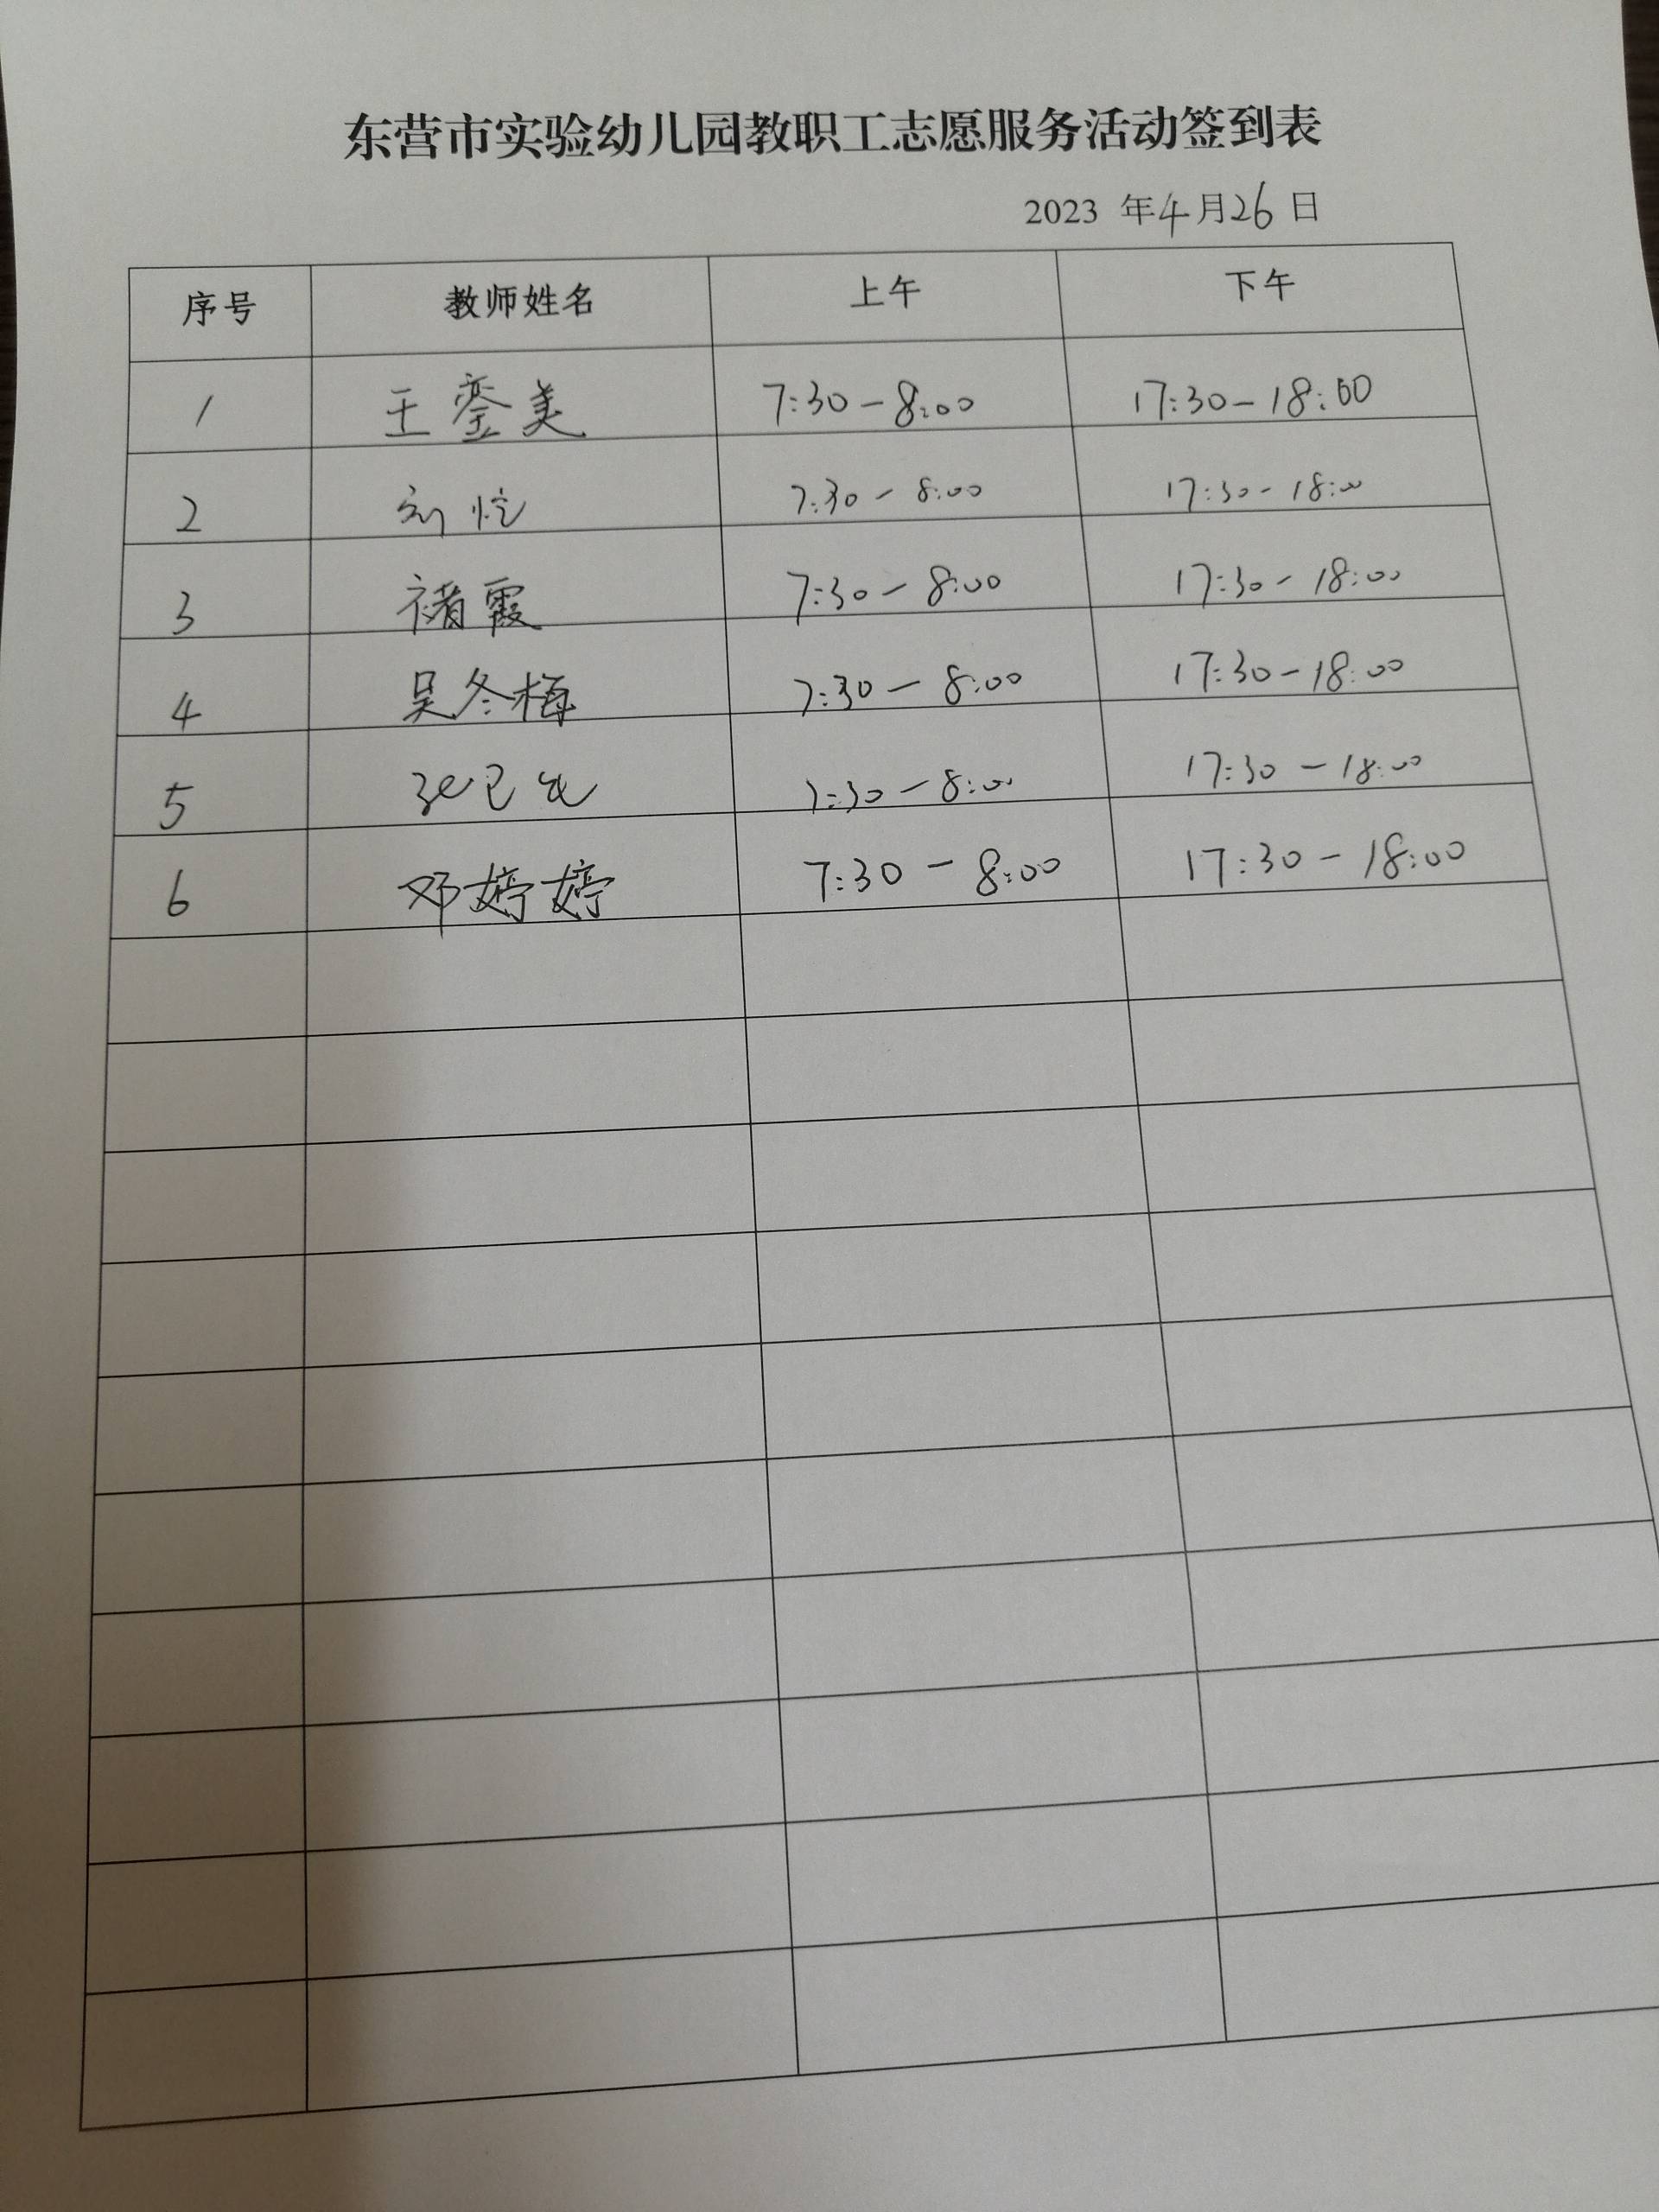 东营市实验幼儿园教职工志愿服务活动签到表
2023 年4月26日
序号 教师姓名 上午 下午
1 王銮美 7:30-8:00 17:30-18:00
2 刘 7:30-8:00 17:30-18:00
3 褚霞 7:30-8:00 17:30-18:00
4 吴冬梅 7:30-8:00 17:30-18:00
5 7:30-8:00 17:30-18:00
6 邓婷婷 7:30-8:00 17:30-18:00